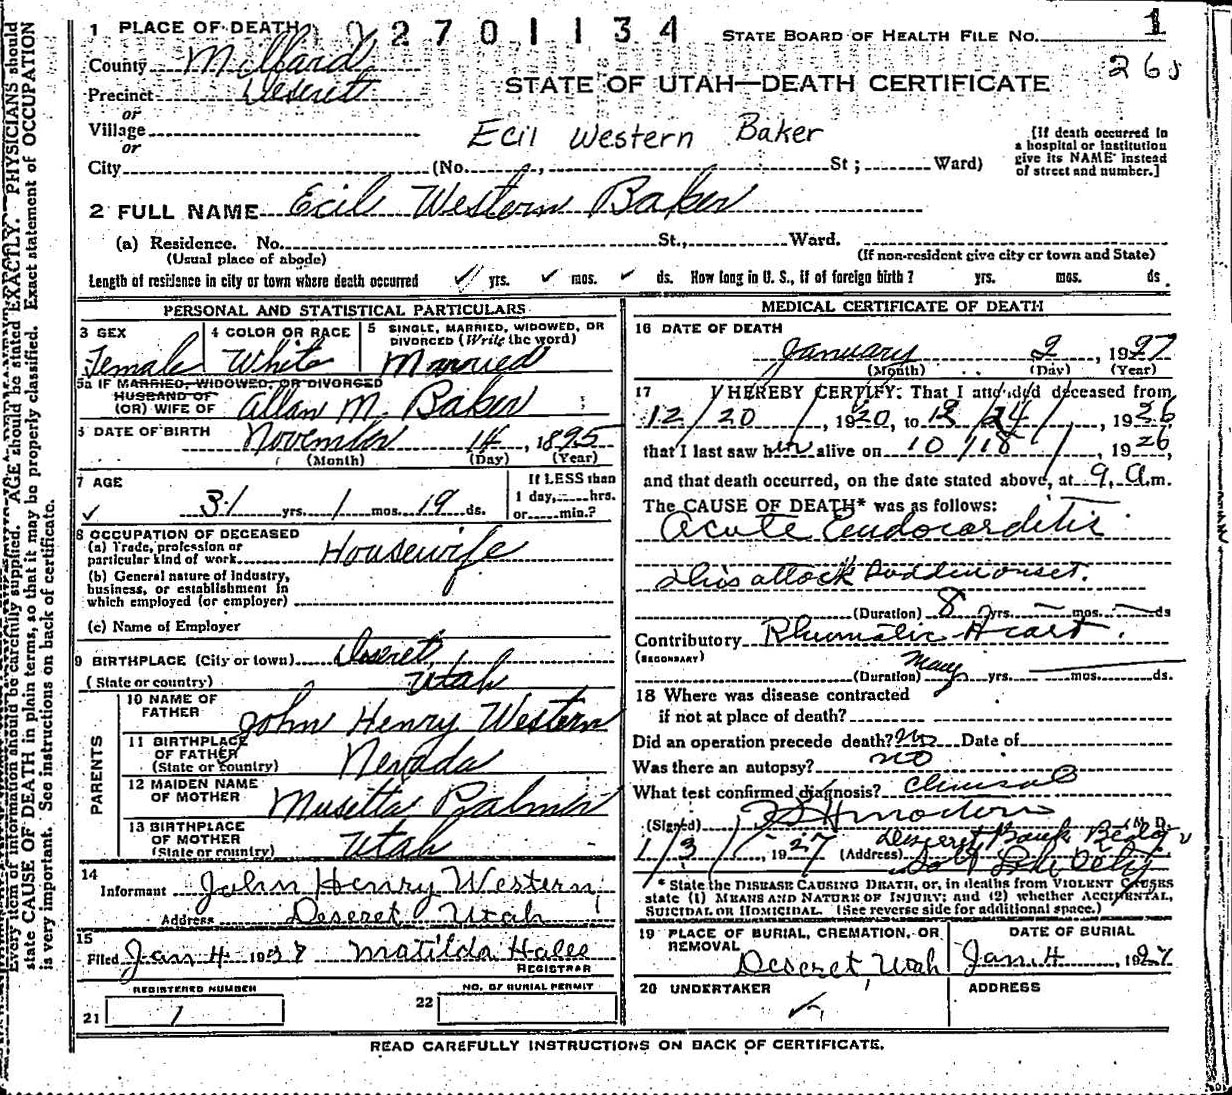 1 PLACE OF DEATH 02701134 STATE BOARD OF HEALTH FILE NO. 1
County Millard 265
Precinct Deseret STATE OF UTAH—DEATH CERTIFICATE
or
Village Ecil Western Baker
or
City (No. , St ; Ward)
[If death occurred in
a hospital or institution
give its NAME instead
of street and number.]
2 FULL NAME Ecil Western Baker
(a) Residence. No. St., Ward.
(Usual place of abode) (If non-resident give city or town and State)
Length of residence in city or town where death occurred ✓ yrs. ✓ mos. ✓ ds. How long in U. S., if of foreign birth ? yrs. mos. ds.
PERSONAL AND STATISTICAL PARTICULARS
3 SEX 4 COLOR OR RACE 5 SINGLE, MARRIED, WIDOWED, OR
DIVORCED (Write the word)
Female White Married
5a IF MARRIED, WIDOWED, OR DIVORCED
HUSBAND OF
(OR) WIFE OF Allan M. Baker
6 DATE OF BIRTH
November 14, 1895
(Month) (Day) (Year)
7 AGE If LESS than
✓ 31 yrs. 1 mos. 19 ds. 1 day, hrs.
or min.?
8 OCCUPATION OF DECEASED
(a) Trade, profession or
particular kind of work Housewife
(b) General nature of Industry,
business, or establishment in
which employed (or employer)
(c) Name of Employer
9 BIRTHPLACE (City or town) Deseret,
(State or country) Utah
PARENTS
10 NAME OF
FATHER John Henry Western
11 BIRTHPLACE
OF FATHER
(State or country) Nevada
12 MAIDEN NAME
OF MOTHER Musetta Palmer
13 BIRTHPLACE
OF MOTHER
(State or country) Utah
14
Informant John Henry Western
Address Deseret Utah
15
Filed Jan 4 1927 Matilda Hales
REGISTRAR
REGISTERED NUMBER NO. OF BURIAL PERMIT
21 1 22
MEDICAL CERTIFICATE OF DEATH
16 DATE OF DEATH
January 2, 1927
(Month) (Day) (Year)
17 I HEREBY CERTIFY: That I attended deceased from
12/20, 1920, to 12/24/, 1926
that I last saw her alive on 10/18/, 1926,
and that death occurred, on the date stated above, at 9 A.m.
The CAUSE OF DEATH* was as follows:
Acute Endocarditis
This attack sudden onset.
(Duration) 8 yrs. — mos. — ds
Contributory Rhumatic Heart.
(SECONDARY)
(Duration) Many yrs. mos. ds.
18 Where was disease contracted
if not at place of death?
Did an operation precede death? No Date of
Was there an autopsy? no
What test confirmed diagnosis? Clinical
(Signed) (M. D.
1/3/, 1927 (Address) Deseret Bank Bldg
Salt Lake City
* State the DISEASE CAUSING DEATH, or, in deaths from VIOLENT CAUSES
state (1) MEANS AND NATURE OF INJURY; and (2) whether ACCIDENTAL,
SUICIDAL OR HOMICIDAL. (See reverse side for additional space.)
19 PLACE OF BURIAL, CREMATION, OR
REMOVAL
Deseret, Utah
DATE OF BURIAL
Jan. 4, 1927
20 UNDERTAKER ADDRESS
✓
READ CAREFULLY INSTRUCTIONS ON BACK OF CERTIFICATE.
Every item of information should be carefully supplied. AGE should be stated EXACTLY. PHYSICIANS should
state CAUSE OF DEATH in plain terms, so that it may be properly classified. Exact statement of OCCUPATION
is very important. See instructions on back of certificate.